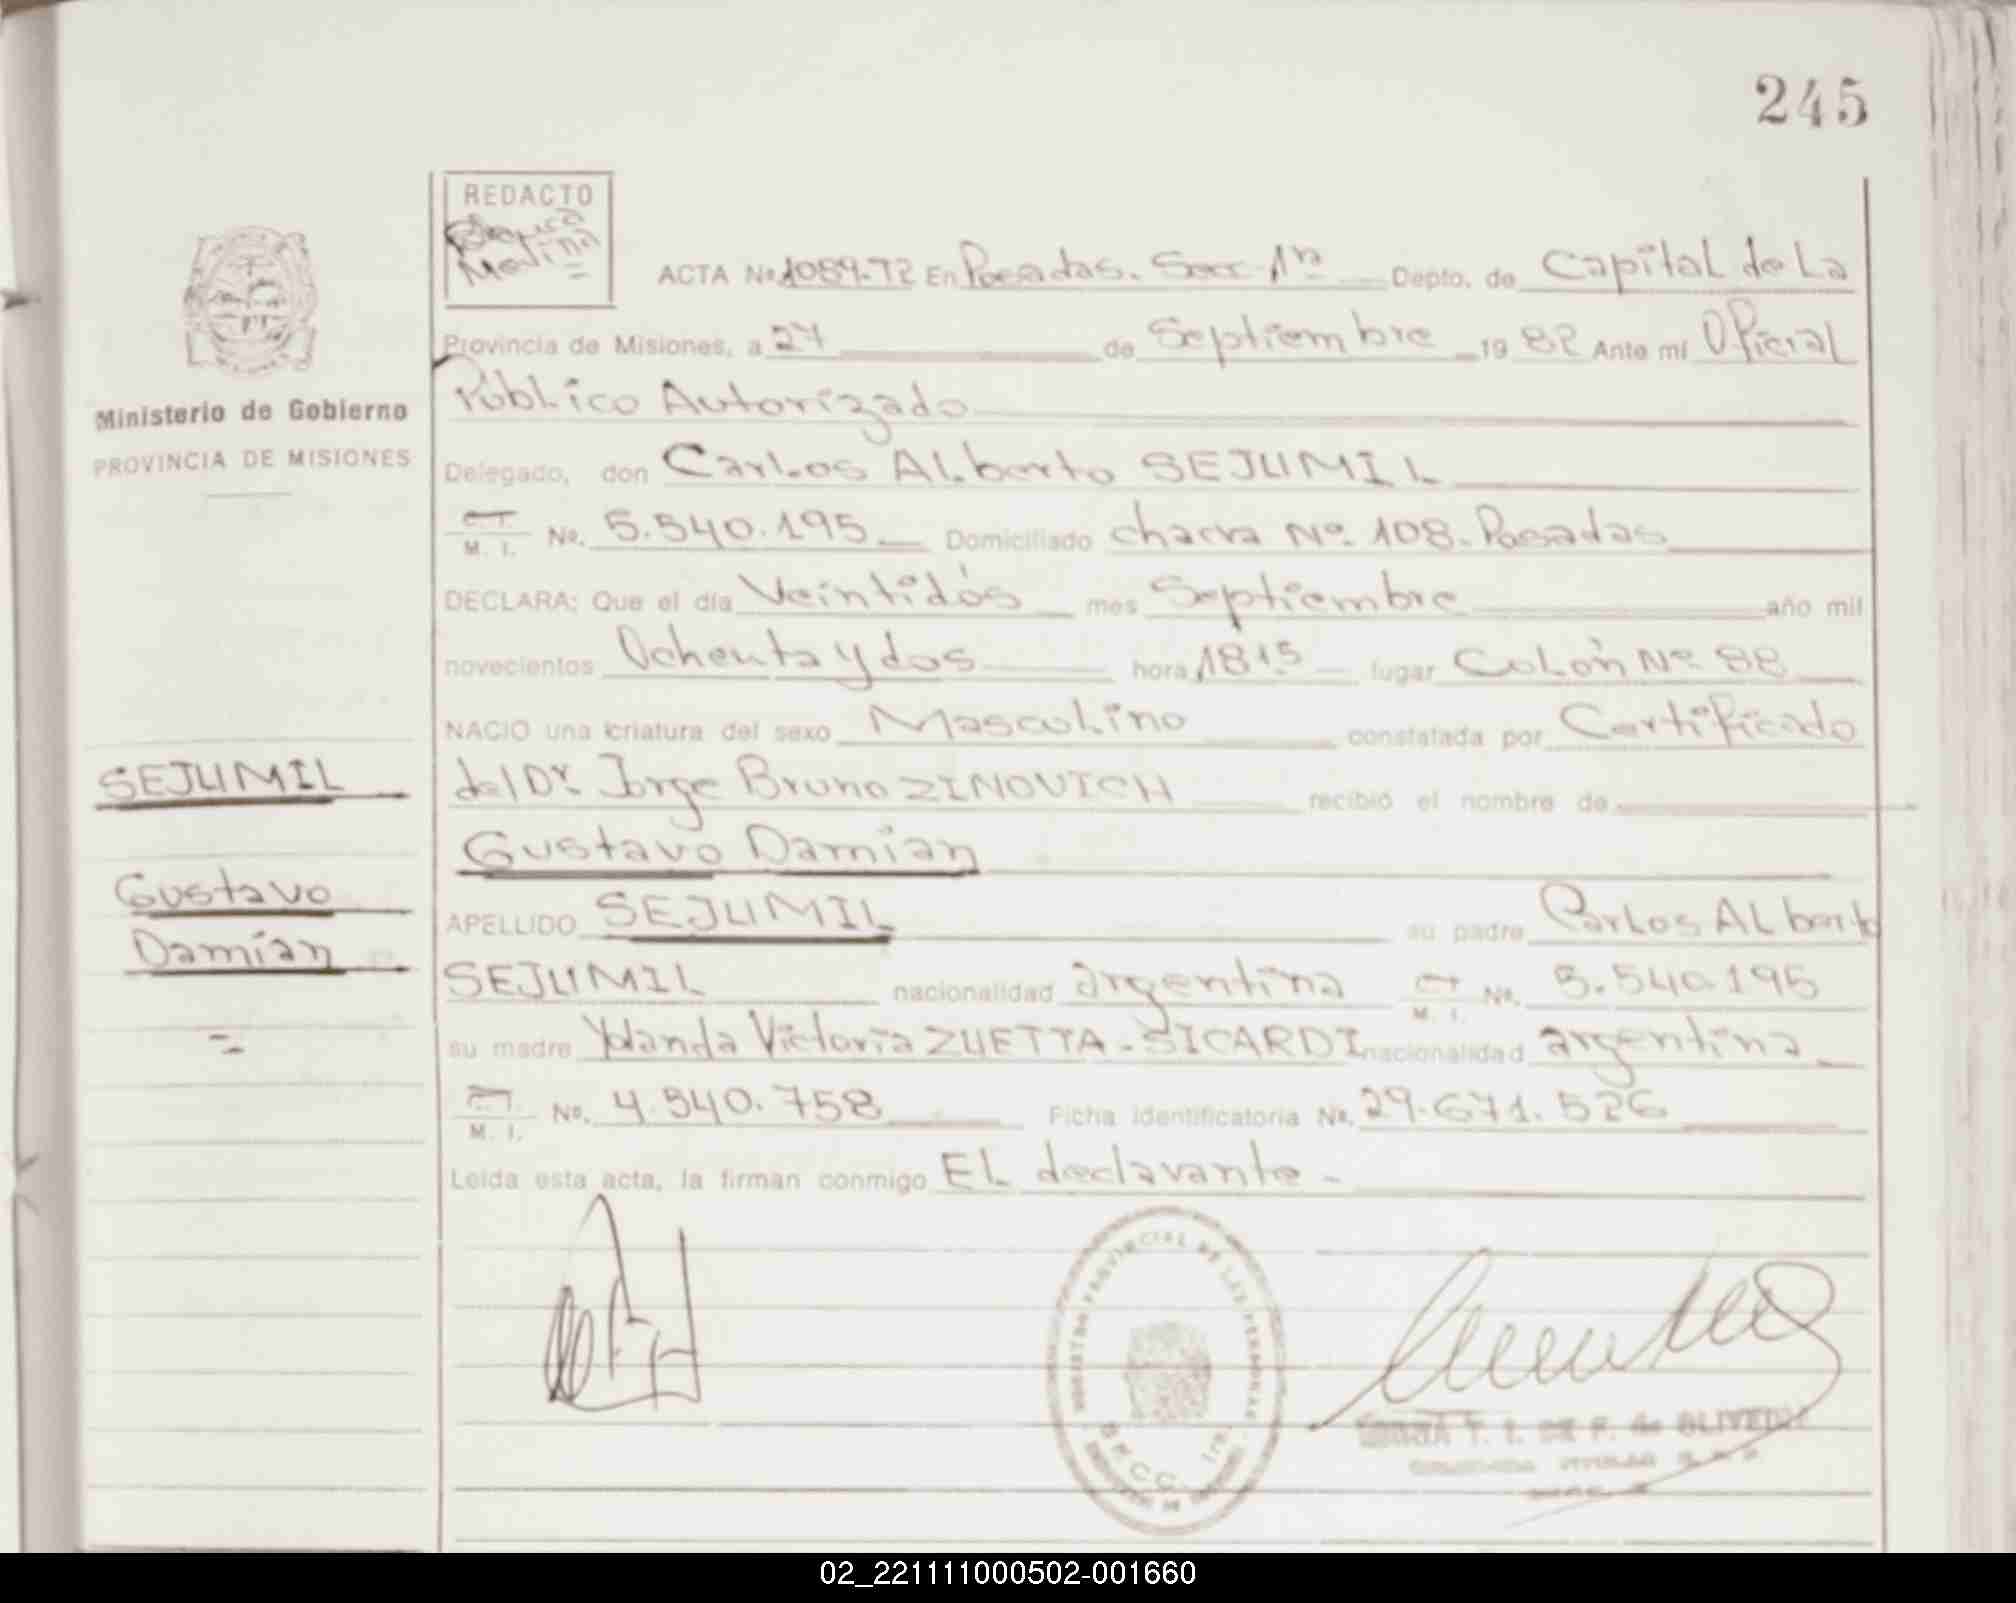 245
REDACTO
Medina
ACTA No. 1089-T2 En Posadas. Secc. 1ra Depto. de Capital de La
Provincia de Misiones, a 27 de Septiembre 19 82 Ante mí Oficial
Público Autorizado
Ministerio de Gobierno
PROVINCIA DE MISIONES
Delegado, don Carlos Alberto SEJUMIL
M. I. No. 5.540.195 Domiciliado chacra Nº 108. Posadas
DECLARA: Que el día Veintidós mes Septiembre año mil
novecientos Ochenta y dos hora 18 15 lugar Colón Nº 88
NACIO una criatura del sexo Masculino constatada por Certificado
del Dr. Jorge Bruno ZINOVICH recibió el nombre de
Gustavo Damián
APELLIDO SEJUMIL su padre Carlos Alberto
SEJUMIL nacionalidad argentina M. I. No. 5.540.195
su madre Yolanda Victoria ZUETTA - SICARDI nacionalidad argentina
M. I. No. 4.540.758 Ficha identificatoria No. 29.671.526
Leída esta acta, la firman conmigo El declarante -
SEJUMIL
Gustavo
Damián
REGISTRO PROVINCIAL DE LAS PERSONAS
SECC. 1ra.
T. I. DE F. de OLIVEIRA
02_221111000502-001660